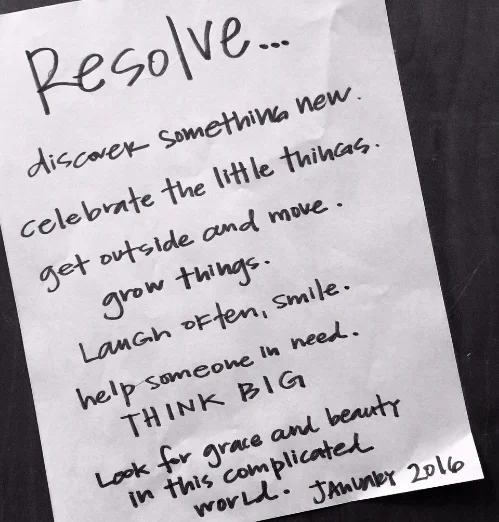 Resolve...
discover something new.
celebrate the little things.
get outside and move.
grow things.
Laugh often, smile.
help someone in need.
THINK BIG
Look for grace and beauty
in this complicated
world. JANUARY 2016